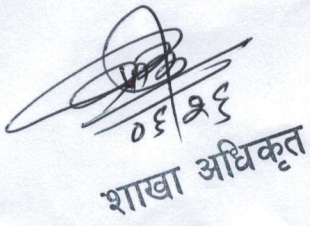 ०६/२६
शाखा अधिकृत